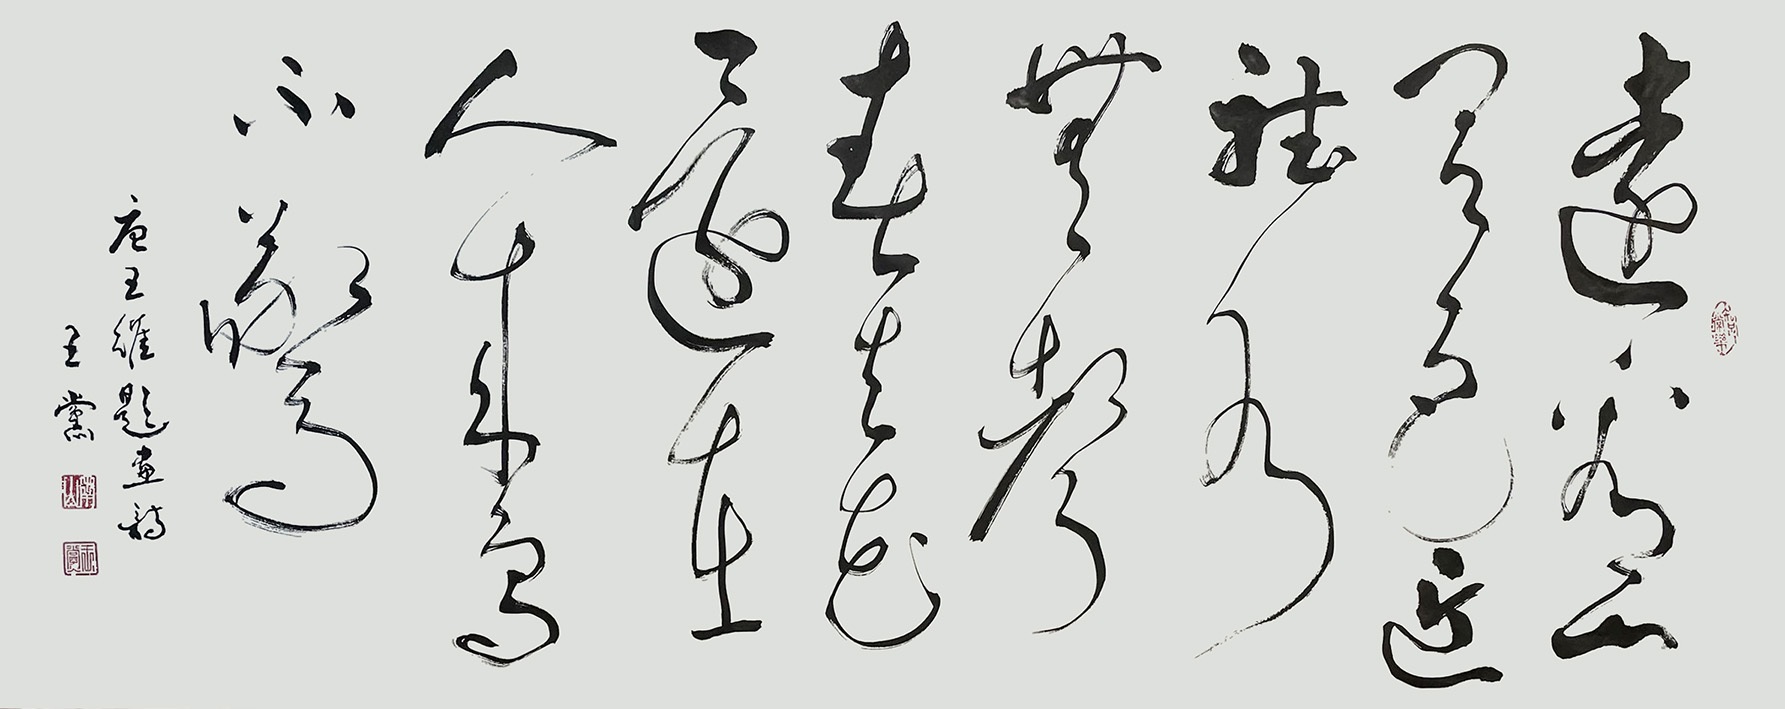 遠看山
有色近
聽水
無聲
春去花
還在
人來鳥
不驚
唐王維題畫詩
王黨